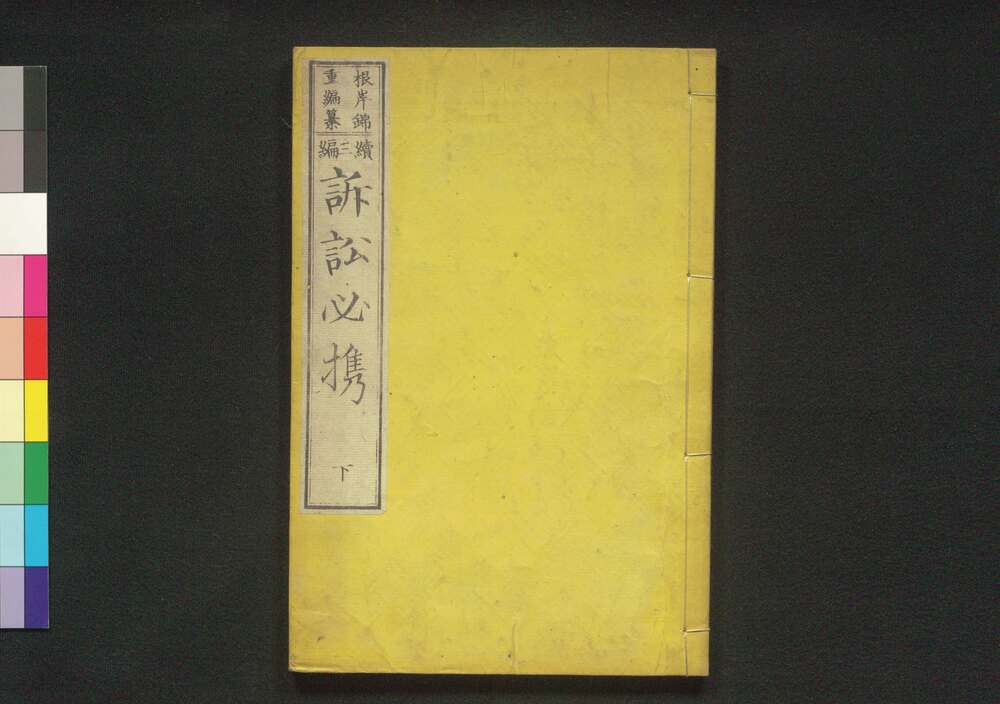 根岸錦
重編纂
續三編
訴訟必携
下